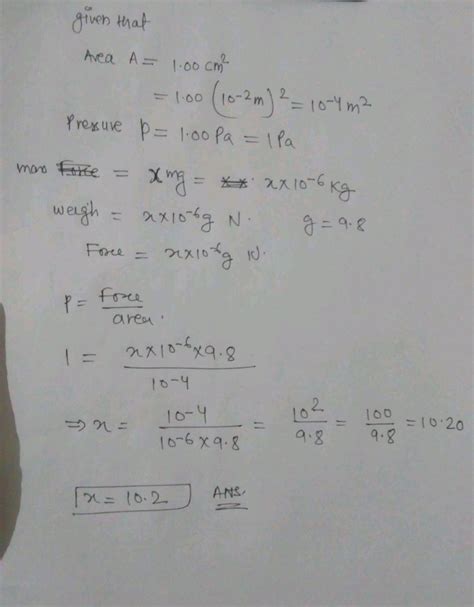 given that
Area A = 1.00 cm²
= 1.00 (10⁻²m)² = 10⁻⁴m²
Pressure P = 1.00 Pa = 1 Pa
mass = x mg = x×10⁻⁶ Kg
weigh = x×10⁻⁶g N. g = 9.8
Force = x×10⁻⁶g N.
P = Force / area.
1 = x×10⁻⁶×9.8 / 10⁻⁴
⇒ x = 10⁻⁴ / 10⁻⁶×9.8 = 10² / 9.8 = 100 / 9.8 = 10.20
x = 10.2 ANS.